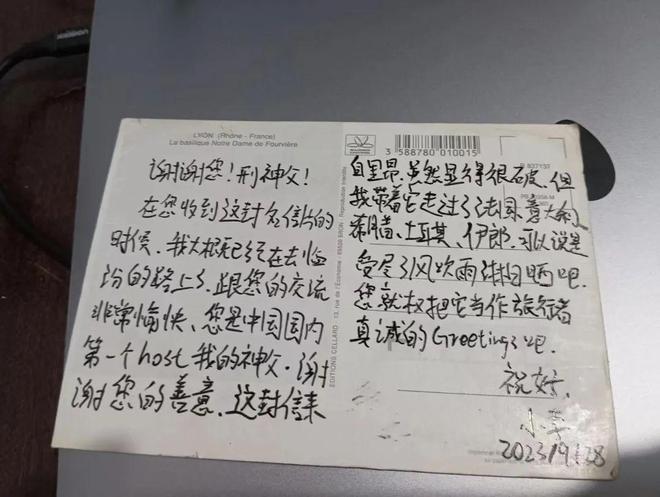 LYON (Rhône - France)
La basilique Notre Dame de Fourvière
谢谢您！邢神父！
在您收到这封名信片的
时候，我大概已经在去临
汾的路上了，跟您的交流
非常愉快、您是中国国内
第一个host我的神父，谢
谢您的善意、这封信来
EDITIONS CELLARD - 13, rue de l'Économie - 69500 BRON - Reproduction interdite
3 588780 010015
自里昂，虽然显得很破，但
我带着它走过了法国、意大利、
希腊、土耳其、伊郎，可以说是
受尽了风吹雨淋日晒吧，
您就权把它当作旅行者
真诚的Greetings吧.
祝好，
小李
2023/9/28